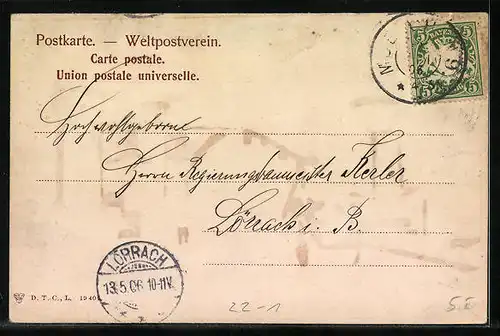 Postkarte. — Weltpostverein.
Carte postale.
Union postale universelle.
BAYERN
5 5
5 5
Hochwohlgeboren
Herrn Regierungsbaumeister Kerler
Lörrach i. B.
LÖRRACH
13.5.06 10-11V.
D. T. C., L. 1940
22-1